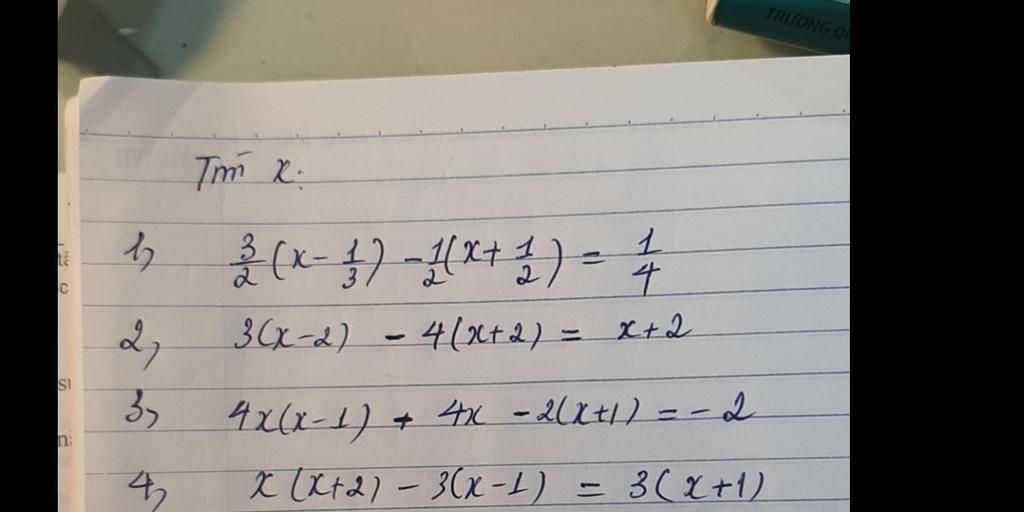 TRƯƠNG
Tìm x:
1, 3/2 (x - 1/3) - 1/2 (x + 1/2) = 1/4
2, 3(x-2) - 4(x+2) = x+2
3, 4x(x-1) + 4x - 2(x+1) = -2
4, x(x+2) - 3(x-1) = 3(x+1)